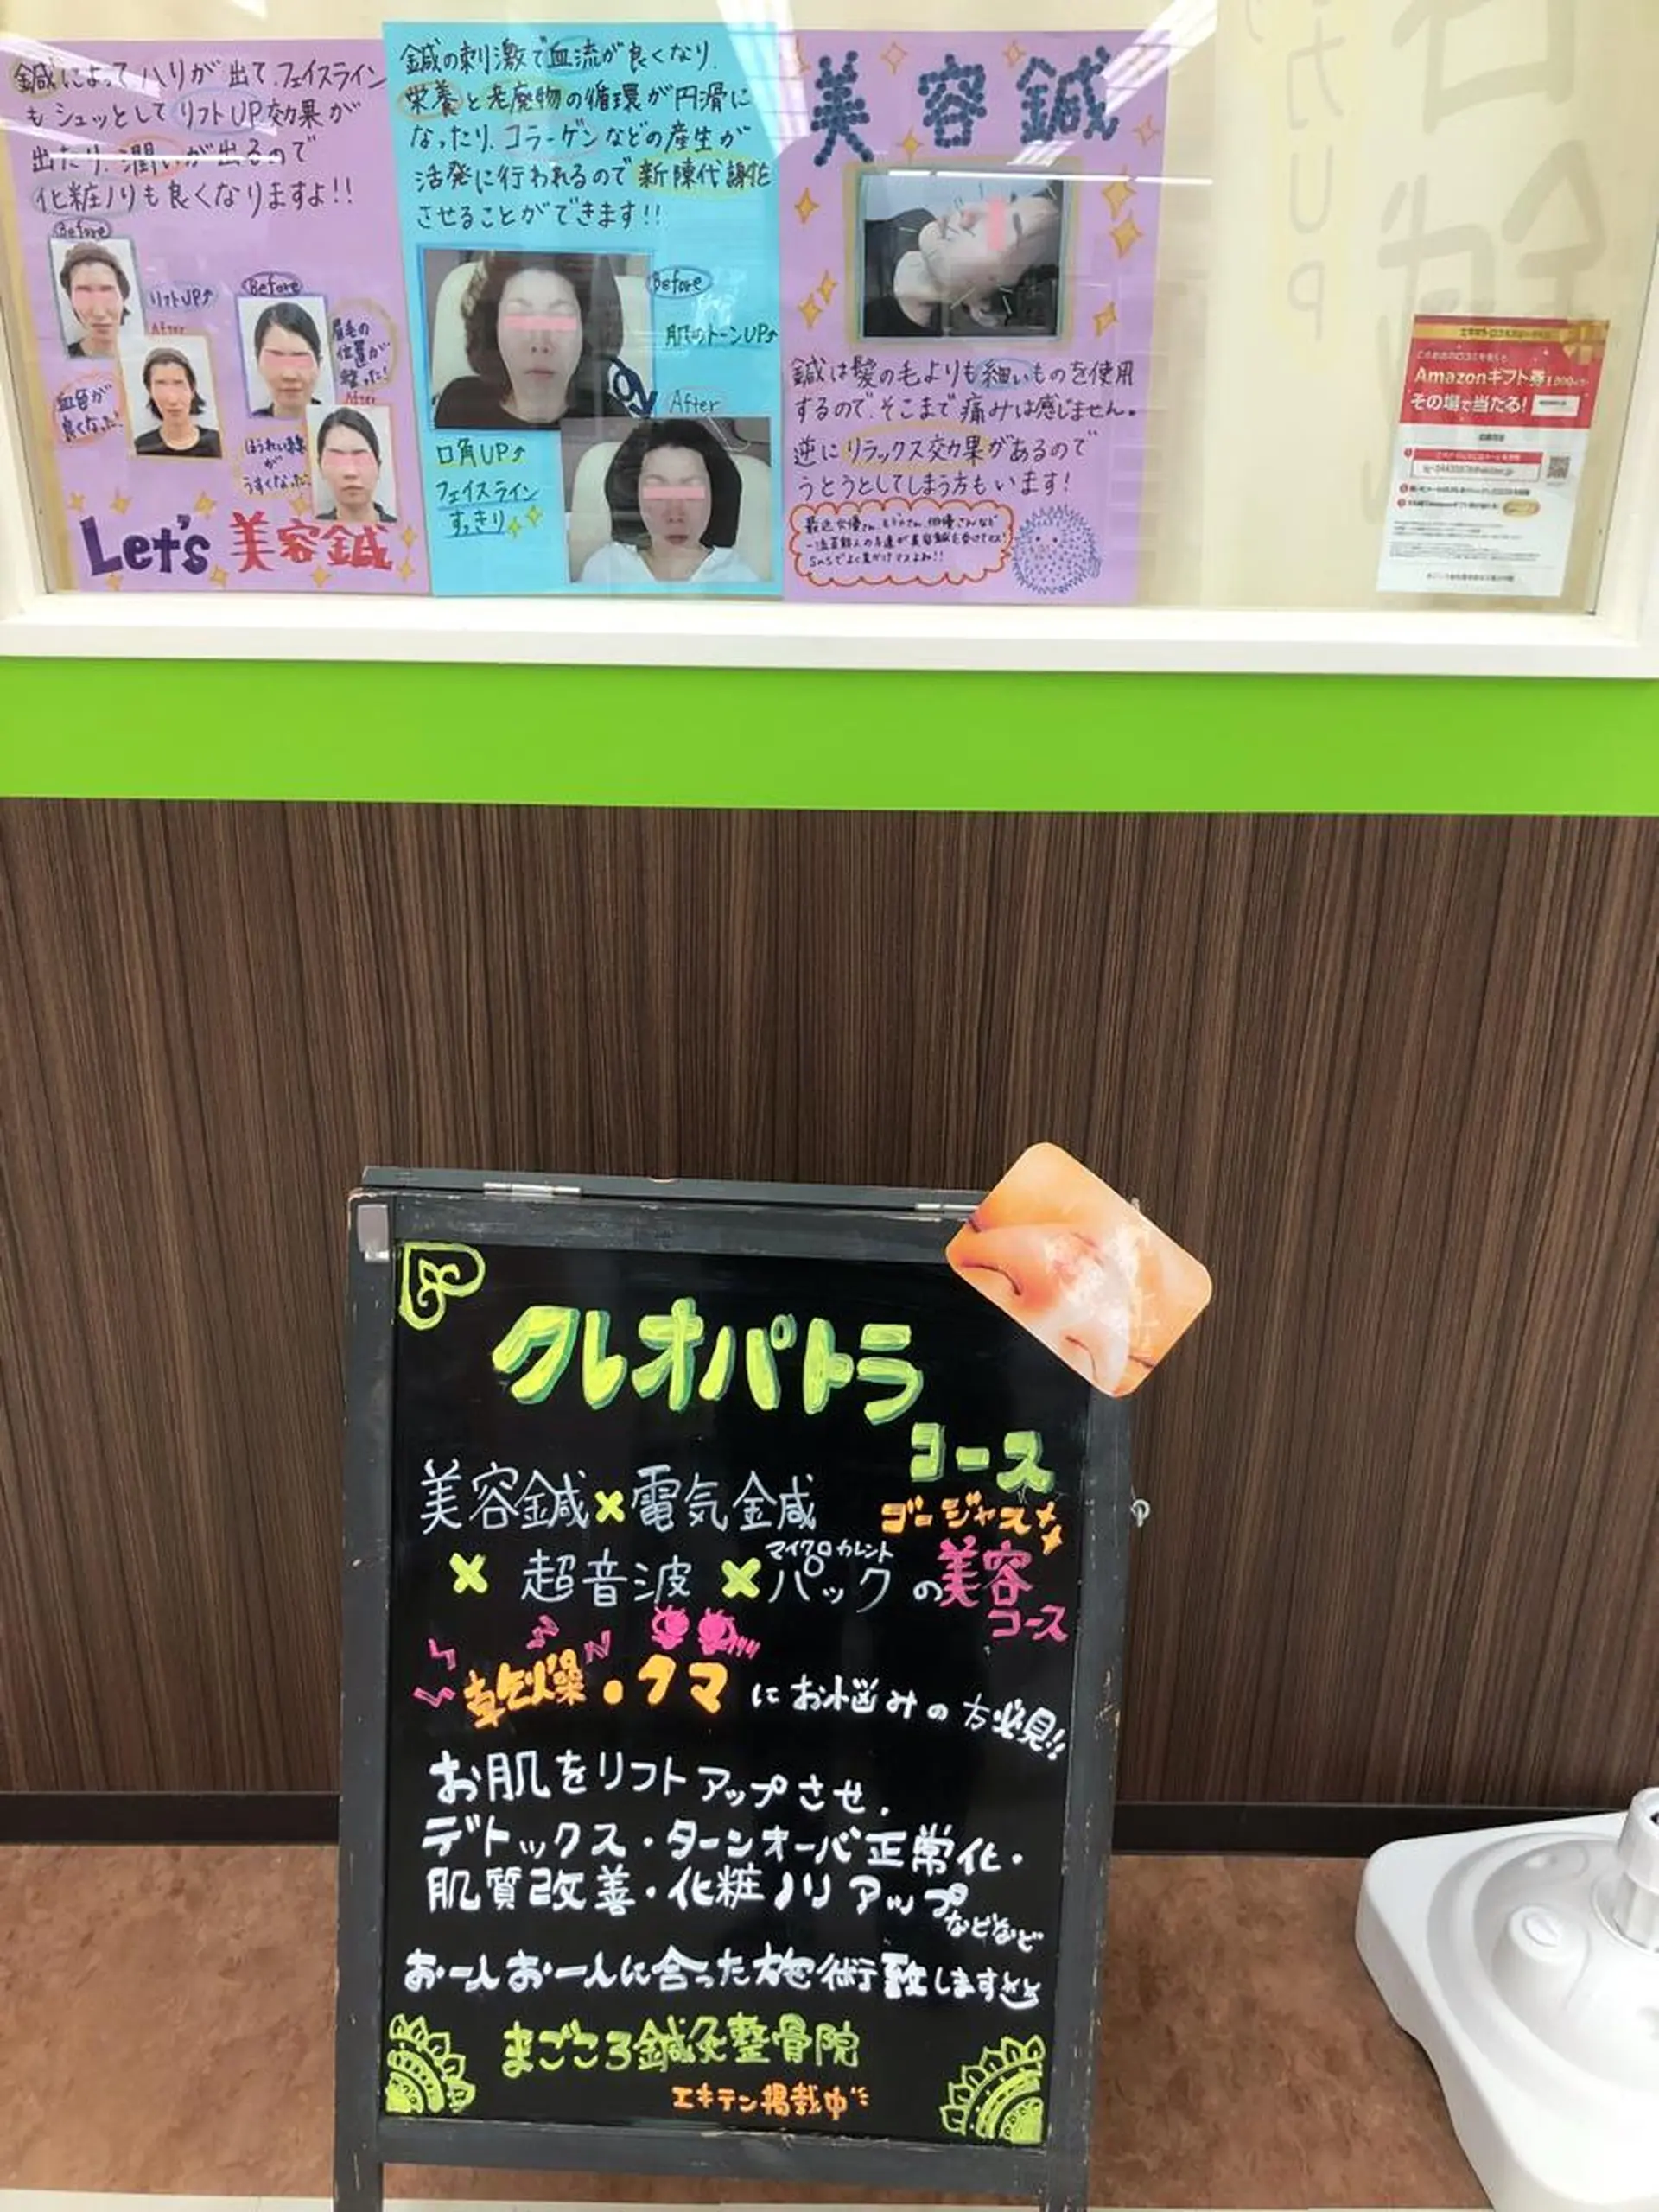 美容鍼
鍼は髪の毛よりも細いものを使用
するので、そこまで痛みは感じません。
逆にリラックス効果があるので
うとうとしてしまう方もいます!
最近女優さん、モデルさん、俳優さんなど
一流芸能人の方達が美容鍼を受けてます!
SNSでよく見かけてマスよね!!
鍼の刺激で血流が良くなり、
栄養と老廃物の循環が円滑に
なったり、コラーゲンなどの産生が
活発に行われるので新陳代謝を
させることができます!!
Before
肌のトーンUP↑
After
口角UP↑
フェイスライン
すっきり
鍼によって、ハリが出て、フェイスライン
もシュッとしてリフトUP効果が
出たり、潤いが出るので
化粧ノリも良くなりますよ!!
Before
リフトUP↑
After
血色が
良くなった!
Before
眉毛の
位置が
整った!
After
ほうれい線
が
うすくなった
Let's 美容鍼
Amazonギフト券
その場で当たる!
クレオパトラ
コース
美容鍼×電気鍼
ゴージャス
×超音波×パックの美容
マイクロカレント
コース
乾燥・クマにお悩みの方必見!!
お肌をリフトアップさせ、
デトックス・ターンオーバ正常化・
肌質改善・化粧ノリアップ
などなど
お一人お一人に合った施術致します
まごころ鍼灸整骨院
エキテン掲載中